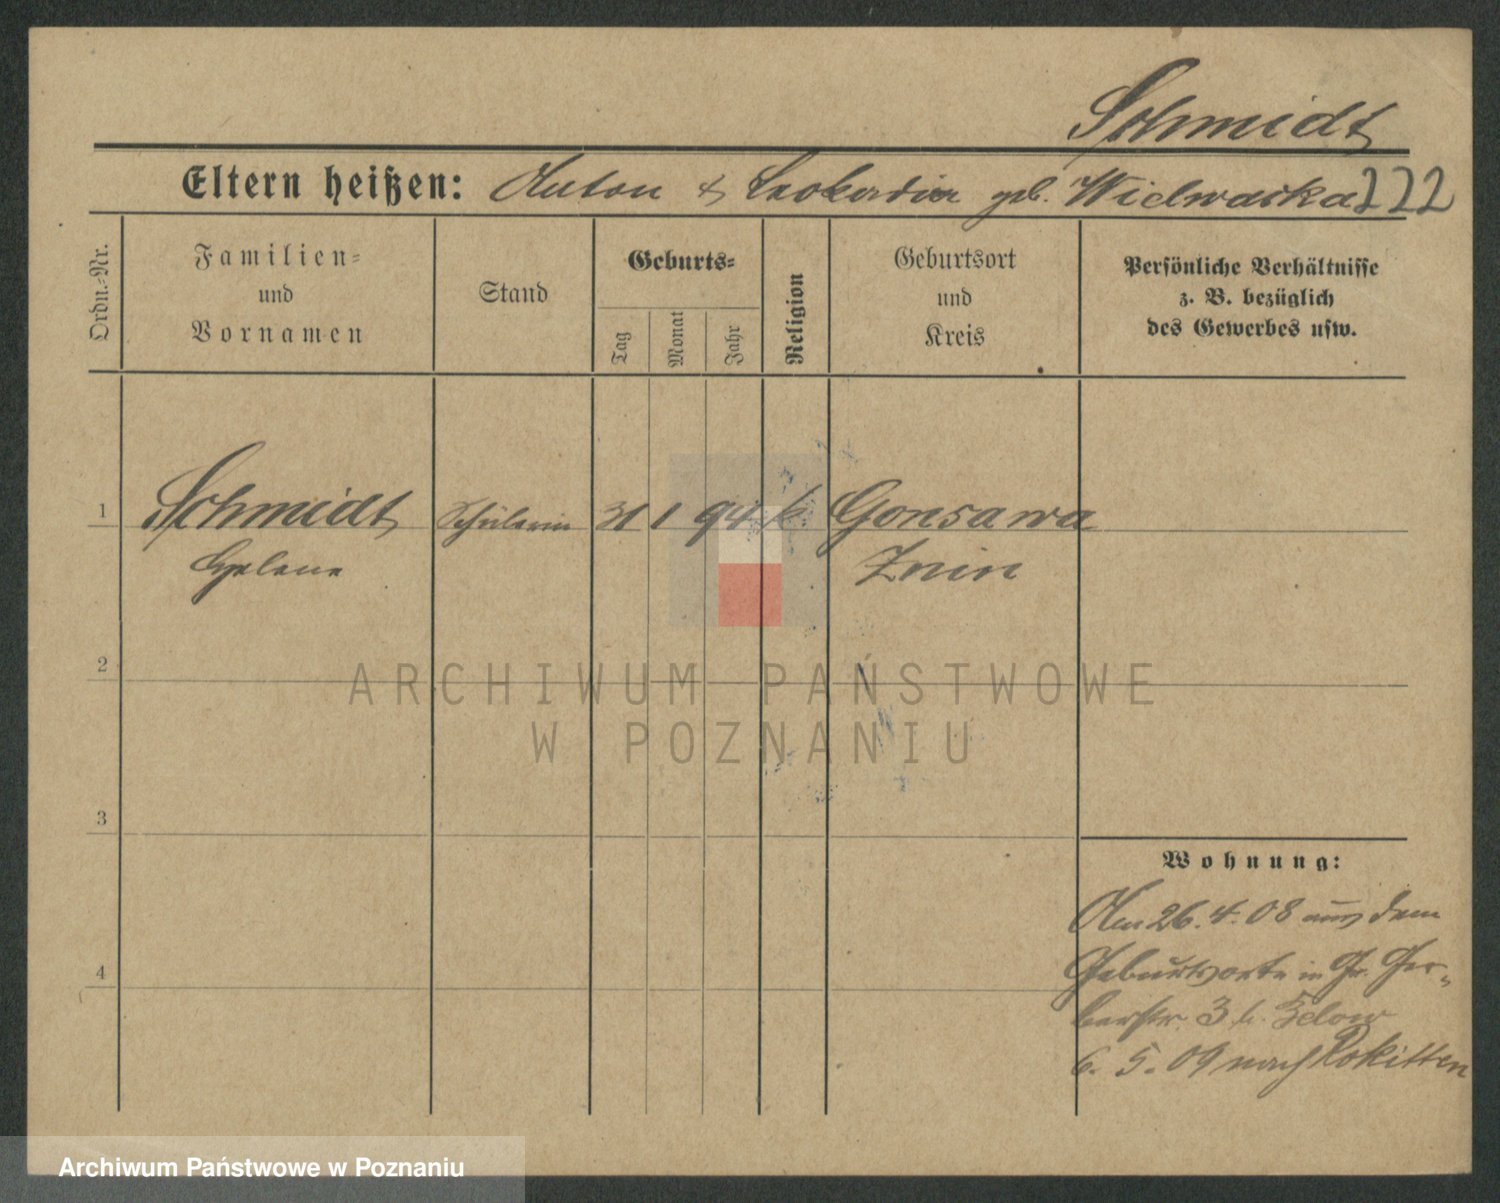 Schmidt
Eltern heißen: Anton & Leokardia geb. Wielwacka 222
Ordn.-Nr.
Familien-
und
Vornamen
Stand
Geburts-
Tag
Monat
Jahr
Religion
Geburtsort
und
Kreis
Persönliche Verhältnisse
z. B. bezüglich
des Gewerbes usw.
1 Schmidt Schülerin 31 1 94 k Gonsawa
Helene Znin
2
ARCHIWUM PAŃSTWOWE
W POZNANIU
3
Wohnung:
Am 26.4.08 aus dem
4
Geburtsorte in Gr. Ger-
berstr. 3 b. Zelow
6. 5. 09 nach Rokitten
Archiwum Państwowe w Poznaniu